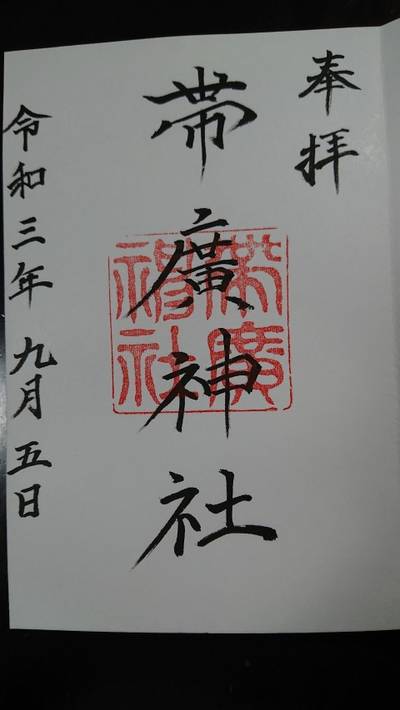 奉拝
帯廣神社
帯廣神社
令和三年九月五日